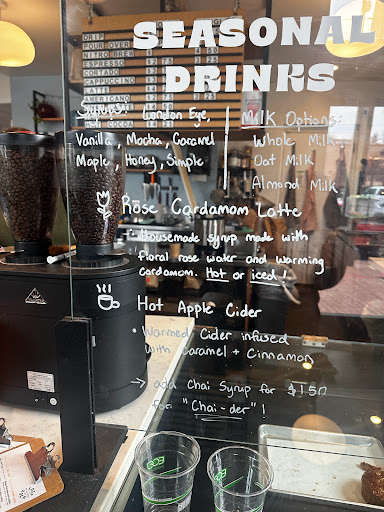 SEASONAL
DRINKS
DRIP
POUR OVER
NITRO BREW
ESPRESSO
CORTADO
CAPPUCCINO
LATTE
AMERICANO
HOT COCOA
Syrups: London Fog,
Vanilla, Mocha, Caramel
Maple, Honey, Simple
Milk Options:
Whole Milk
Oat Milk
Almond Milk
Rose Cardamom Latte
Housemade syrup made with
floral rose water and warming
cardamom. Hot or iced!
Hot Apple Cider
• Warmed Cider infused
with caramel + Cinnamon
→ add Chai Syrup for $1.50
for "Chai-der"!
ECO
ECO